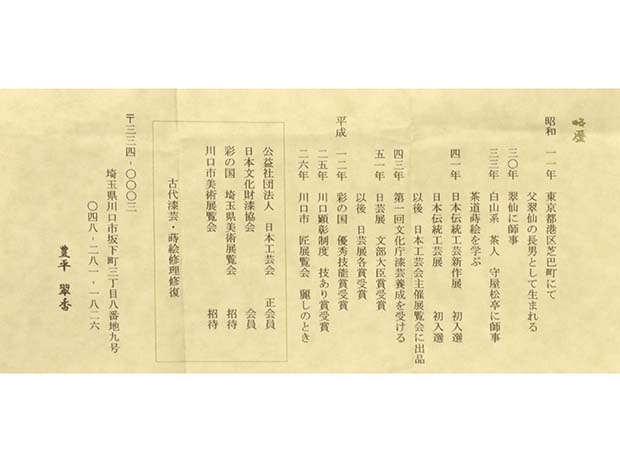 略歴
昭和 一一年 東京都港区芝巴町にて
父翠仙の長男として生まれる
三〇年 翠仙に師事
三三年 白山系 茶人 守屋松亭に師事
茶道蒔絵を学ぶ
四一年 日本伝統工芸新作展 初入選
日本伝統工芸展 初入選
以後 日本工芸会主催展覧会に出品
四三年 第一回文化庁漆芸養成を受ける
五一年 日芸展 文部大臣賞受賞
以後 日芸展各賞受賞
平成 一二年 彩の国 優秀技能賞受賞
二五年 川口顕彰制度 技あり賞受賞
二六年 川口市 匠展覧会 麗しのとき
公益社団法人 日本工芸会 正会員
日本文化財漆協会 会員
彩の国 埼玉県美術展覧会 招待
川口市美術展覧会 招待
古代漆芸・蒔絵修理修復
〒三三四-〇〇〇三
埼玉県川口市坂下町三丁目八番地九号
〇四八-二八一-一八二六
豊平 翠香